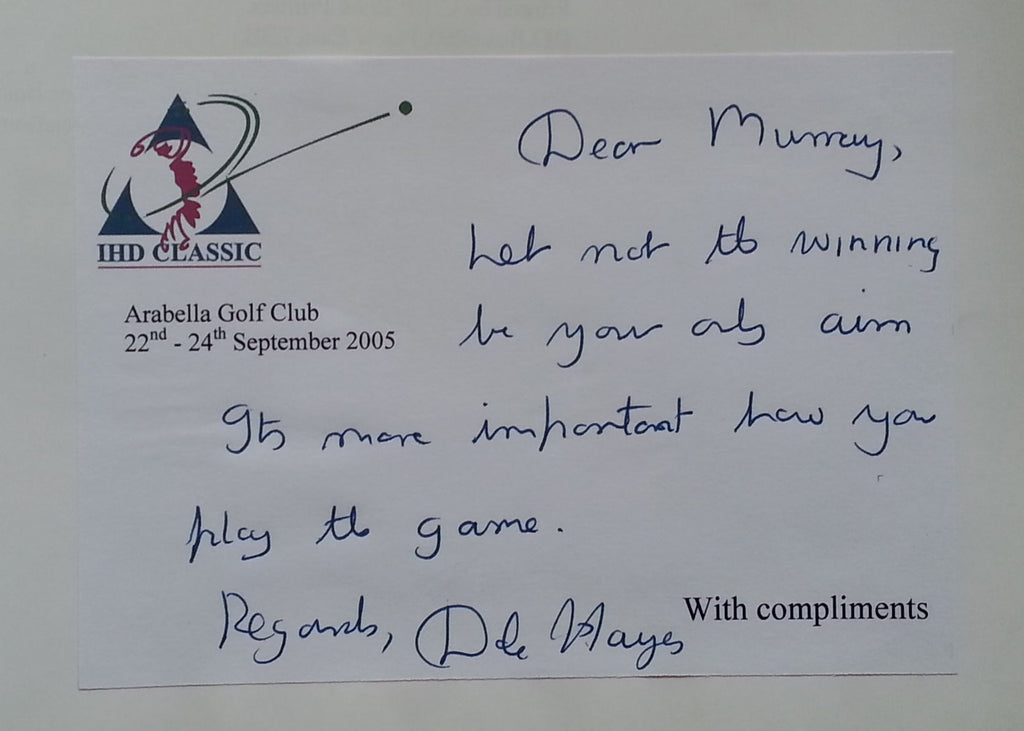 IHD CLASSIC
Arabella Golf Club
22nd - 24th September 2005
Dear Murray,
Let not the winning
be your only aim
Its more important how you
play the game.
Regards, Dale Hayes
With compliments